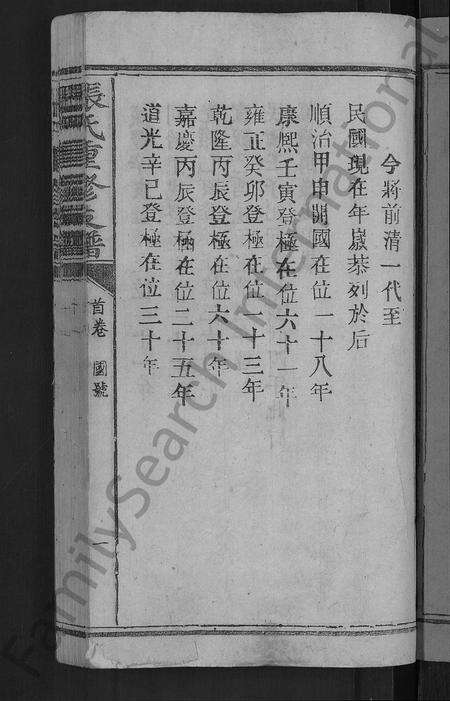 今將前清一代至
民國現在年嵗恭列於后
順治甲申開國在位一十八年
康熙壬寅登極在位六十一年
雍正癸卯登極在位一十三年
乾隆丙辰登極在位六十年
嘉慶丙辰登極在位二十五年
道光辛巳登極在位三十年
張氏重修支譜
首卷 國號
一
FamilySearch International